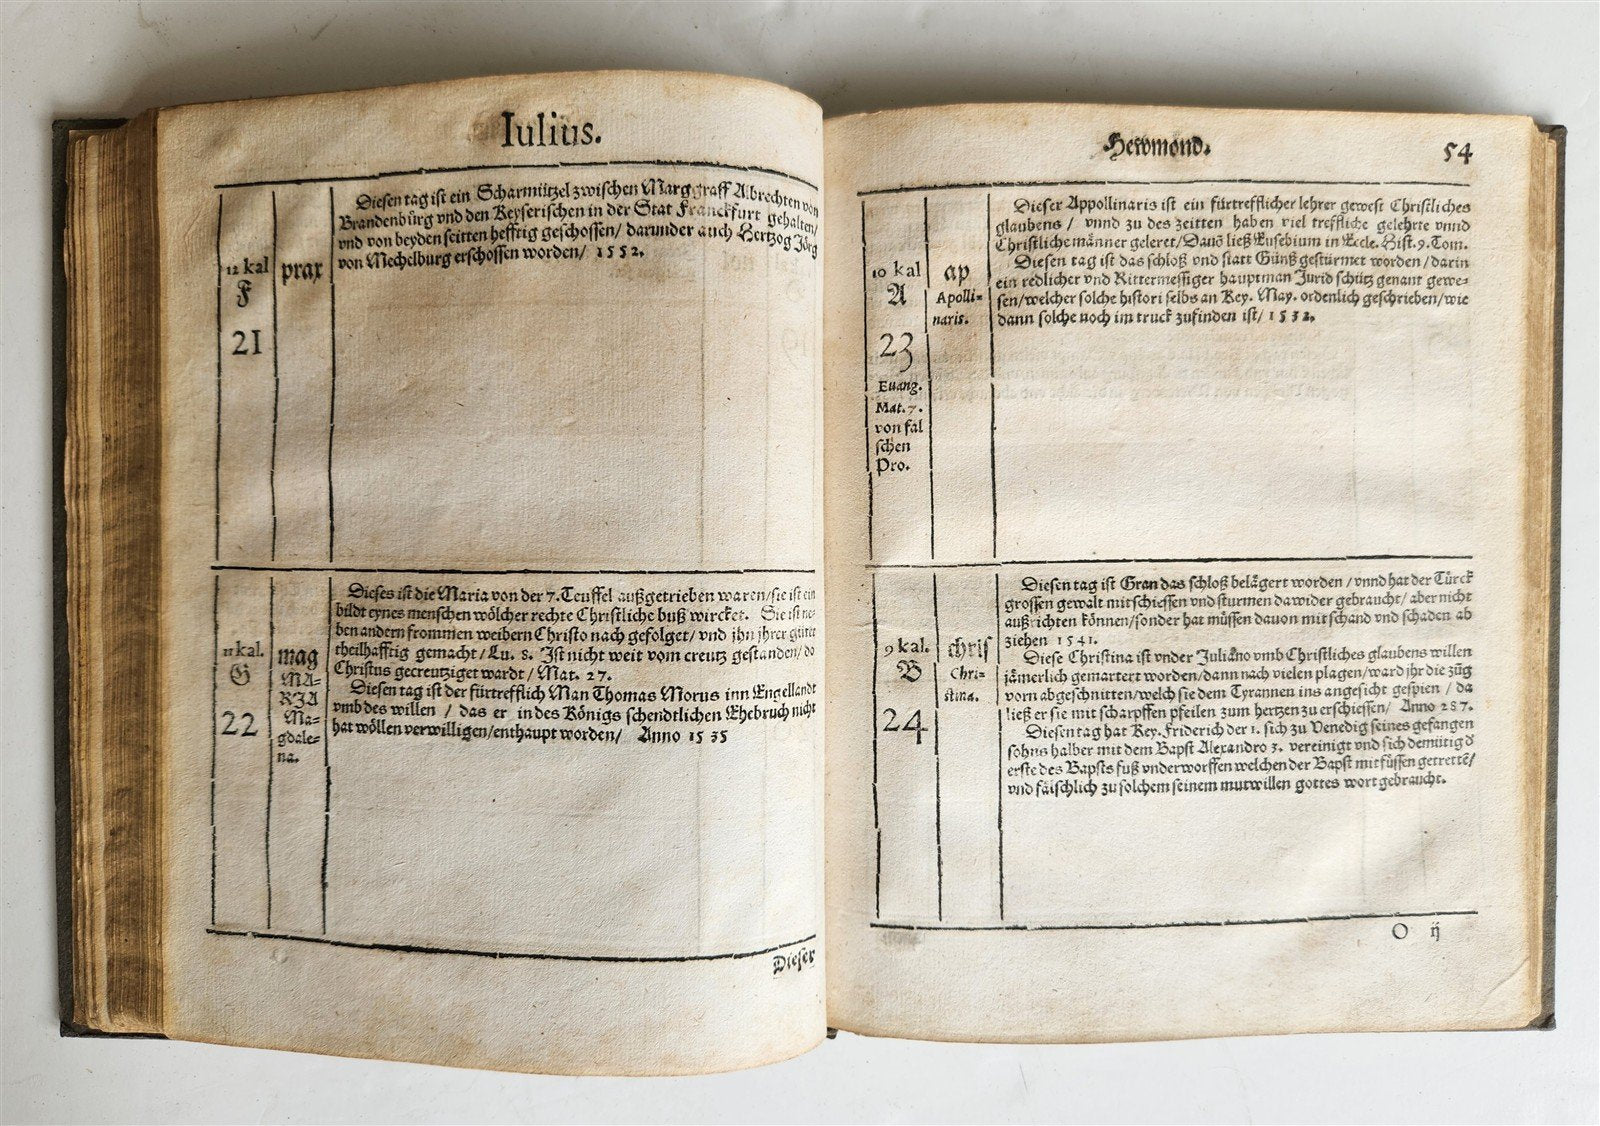 Iulius.
12 kal
F
21
prax
Diesen tag ist ein Scharmützel zwischen Marggraff Albrechten von
Brandenbürg vnd den Keyserischen in der Stat Franckfurt gehalten/
vnd von beyden seitten hefftig geschossen/ darunder auch Hertzog Jörg
von Mechelburg erschossen worden/ 1552.
11 kal.
G
22
mag
MA-
RIA
Ma-
gdale-
na.
Dieses ist die Maria von der 7. Teuffel außgetrieben waren/ sie ist ein
bildt eynes menschen wölcher rechte Christliche buß wircket. Sie ist ne-
ben andern frommen weibern Christo nach gefolget/ vnd jhn jhrer güter
theilhafftig gemacht/ Lu. 8. Ist nicht weit vom creutz gestanden/ do
Christus gecreutziget wardt/ Mat. 27.
Diesen tag ist der fürtrefflich Man Thomas Morus inn Engellandt
vmb des willen/ das er in des Königs schendtlichen Ehebruch nicht
hat wöllen verwilligen/ enthaupt worden/ Anno 1535
Dieser
Hewmond.
54
10 kal
A
23
Euang.
Mat. 7.
von fal
schen
Pro.
ap
Apolli-
naris.
Dieser Appollinaris ist ein fürtrefflicher lehrer gewest Christliches
glaubens/ vnnd zu des zeitten haben viel treffliche gelehrte vnnd
Christliche männer geleret/ Dauō ließ Eusebium in Eccle. Hist. 9. Tom.
Diesen tag ist das schloß vnd statt Günß gestürmet worden/ darin
ein redlicher vnd Rittermessiger hauptman Jurid schütz genant gewe-
sen/ welcher solche histori selbs an Key. May. ordenlich geschrieben/ wie
dann solche noch im truck zufinden ist/ 1532.
9 kal.
B
24
chris
Chri-
stina.
Diesen tag ist Gran das schloß belägert worden/ vnnd hat der Türck
grossen gewalt mit schiessen vnd stürmen dawider gebraucht/ aber nicht
außrichten können/ sonder hat müssen dauon mit schand vnd schaden ab
ziehen 1541.
Diese Christina ist vnder Juliano vmb Christliches glaubens willen
jämerlich gemartert worden/ dann nach vielen plagen/ ward jhr die züg
vorn abgeschnitten/ welch sie dem Tyrannen ins angesicht gespien/ da
ließ er sie mit scharpffen pfeilen zum hertzen zu erschiessen/ Anno 287.
Diesen tag hat Key. Friderich der 1. sich zu Venedig seines gefangen
sohns halber mit dem Bapst Alexandro 3. vereinigt vnd sich demütig d̄
erste des Bapsts fuß vnderworffen welchen der Bapst mit füssen getrettē/
vnd fälschlich zu solchem seinem mutwillen gottes wort gebraucht.
O ij